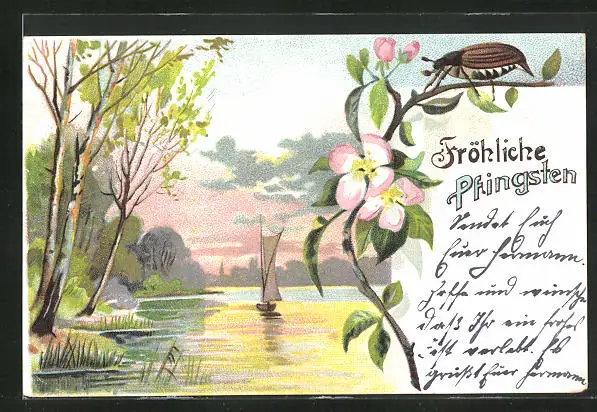 Fröhliche
Pfingsten
Sendet Euch
Euer Hermann.
Hoffe und wünsche
daß Ihr ein frohes
verlebt. Es
grüßt Euer Hermann